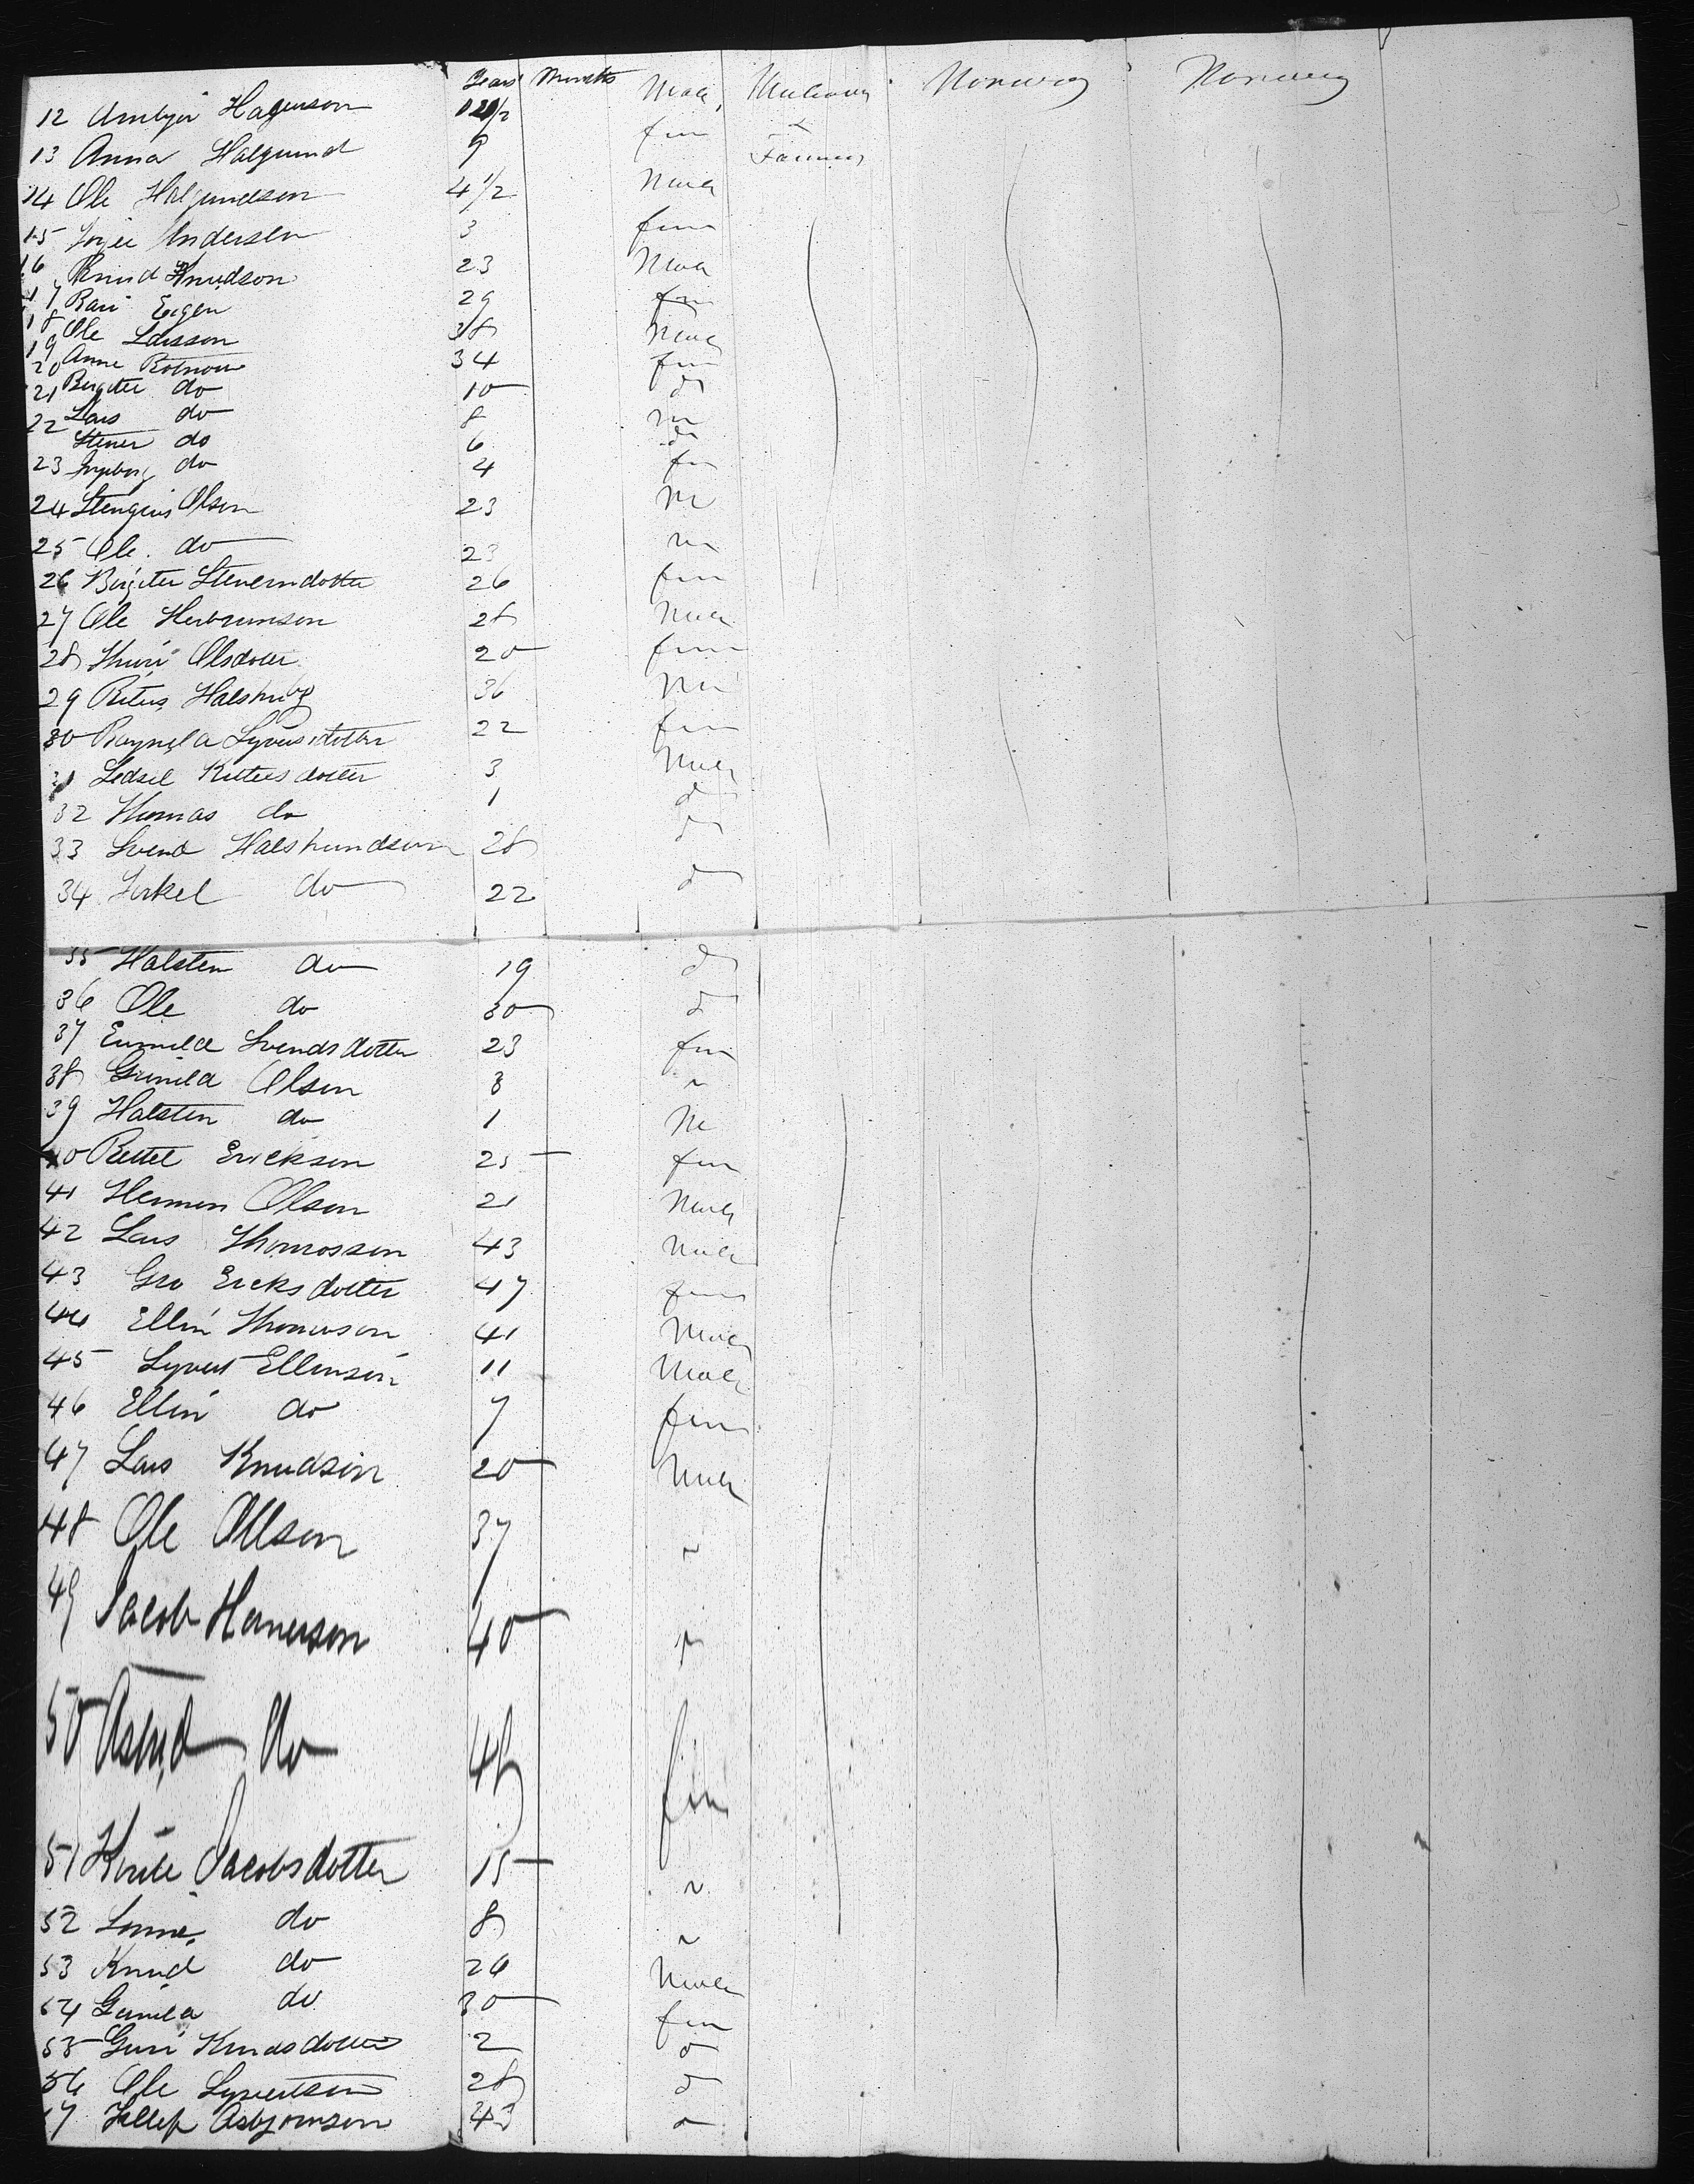 Years Months
12 Ambjor Hagenson 12 1/2 Male Norway Norway
13 Anna Halgrund 9 fem Farmer
14 Ole Halgundson 4 1/2 Male
15 Andersen 3 fem
16 Knud Knudson 23 Male
17 Rari Eigen 29 fem
18 Ole Larsson 38 Male
19 Anne 34 fem
20 Birgitte do 10 do
21 Lars do 8 m
22 Stener do 6 do
23 Ingeborg do 4 fem
24 Olson 23 M
25 Ole do 23 m
26 Birgitte Stenerndotter 26 fem
27 Ole Herbrunson 28 Male
28 Thuri Olsdotter 20 fem
29 36 M
30 22 fem
31 3 Male
32 Thomas do 1 do
33 Svend Halshundson 28 do
34 Torkel do 22 do
35 Halsten do 19 do
36 Ole do 30 do
37 Svendsdotter 23 fem
38 Gunild Olsen 3 "
39 Halsten do 1 M
40 Kettel Erickson 25 fem
41 Hermon Olson 21 Male
42 Lars Thomasson 43 Male
43 Gro Ericksdotter 47 fem
44 Ellin Thomason 41 Male
45 Syvert Ellinson 11 Male
46 Ellin do 7 fem
47 Lars Knudson 20 Male
48 Ole Ollson 37 "
49 Jacob Hanerson 40 "
50 Astrid do 48 fem
51 Jacobsdotter 15 "
52 do 8 "
53 Knud do 26 Male
54 Gunila do 30 fem
55 Guri Knudsdotter 2 do
56 Ole Syvertson 28 do
57 Tellef Asbjornson 43 do